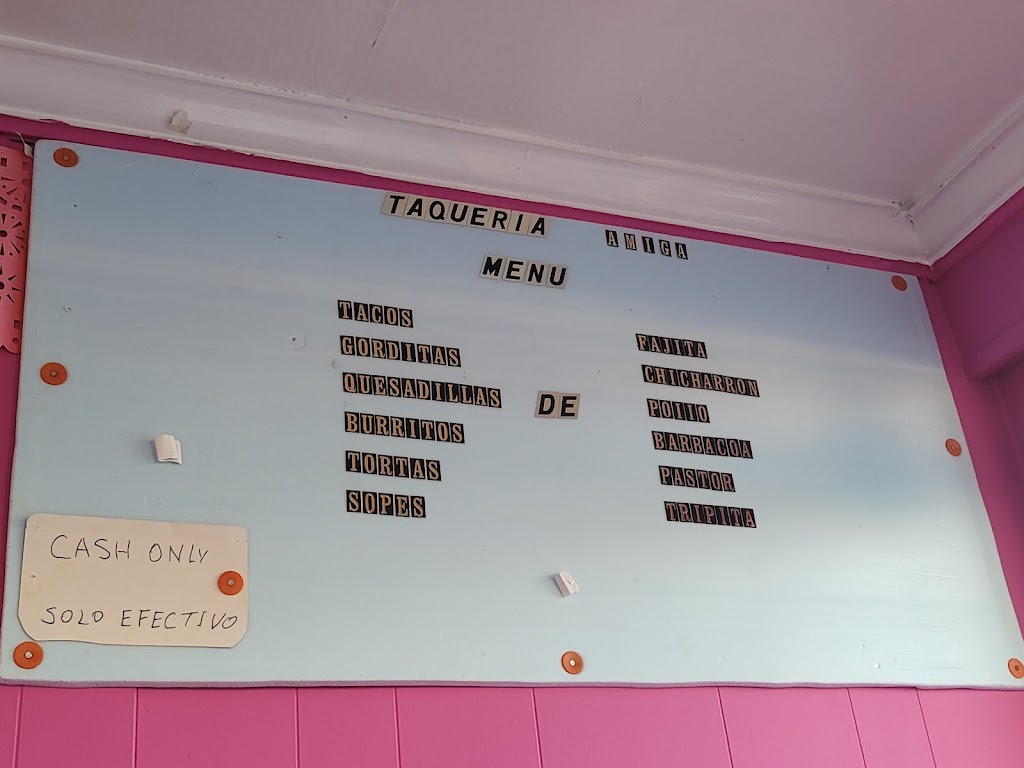 TAQUERIA AMIGA
MENU
TACOS
GORDITAS
QUESADILLAS
BURRITOS
TORTAS
SOPES
DE
FAJITA
CHICHARRON
POIIO
BARBACOA
PASTOR
TRIPITA
CASH ONLY
SOLO EFECTIVO